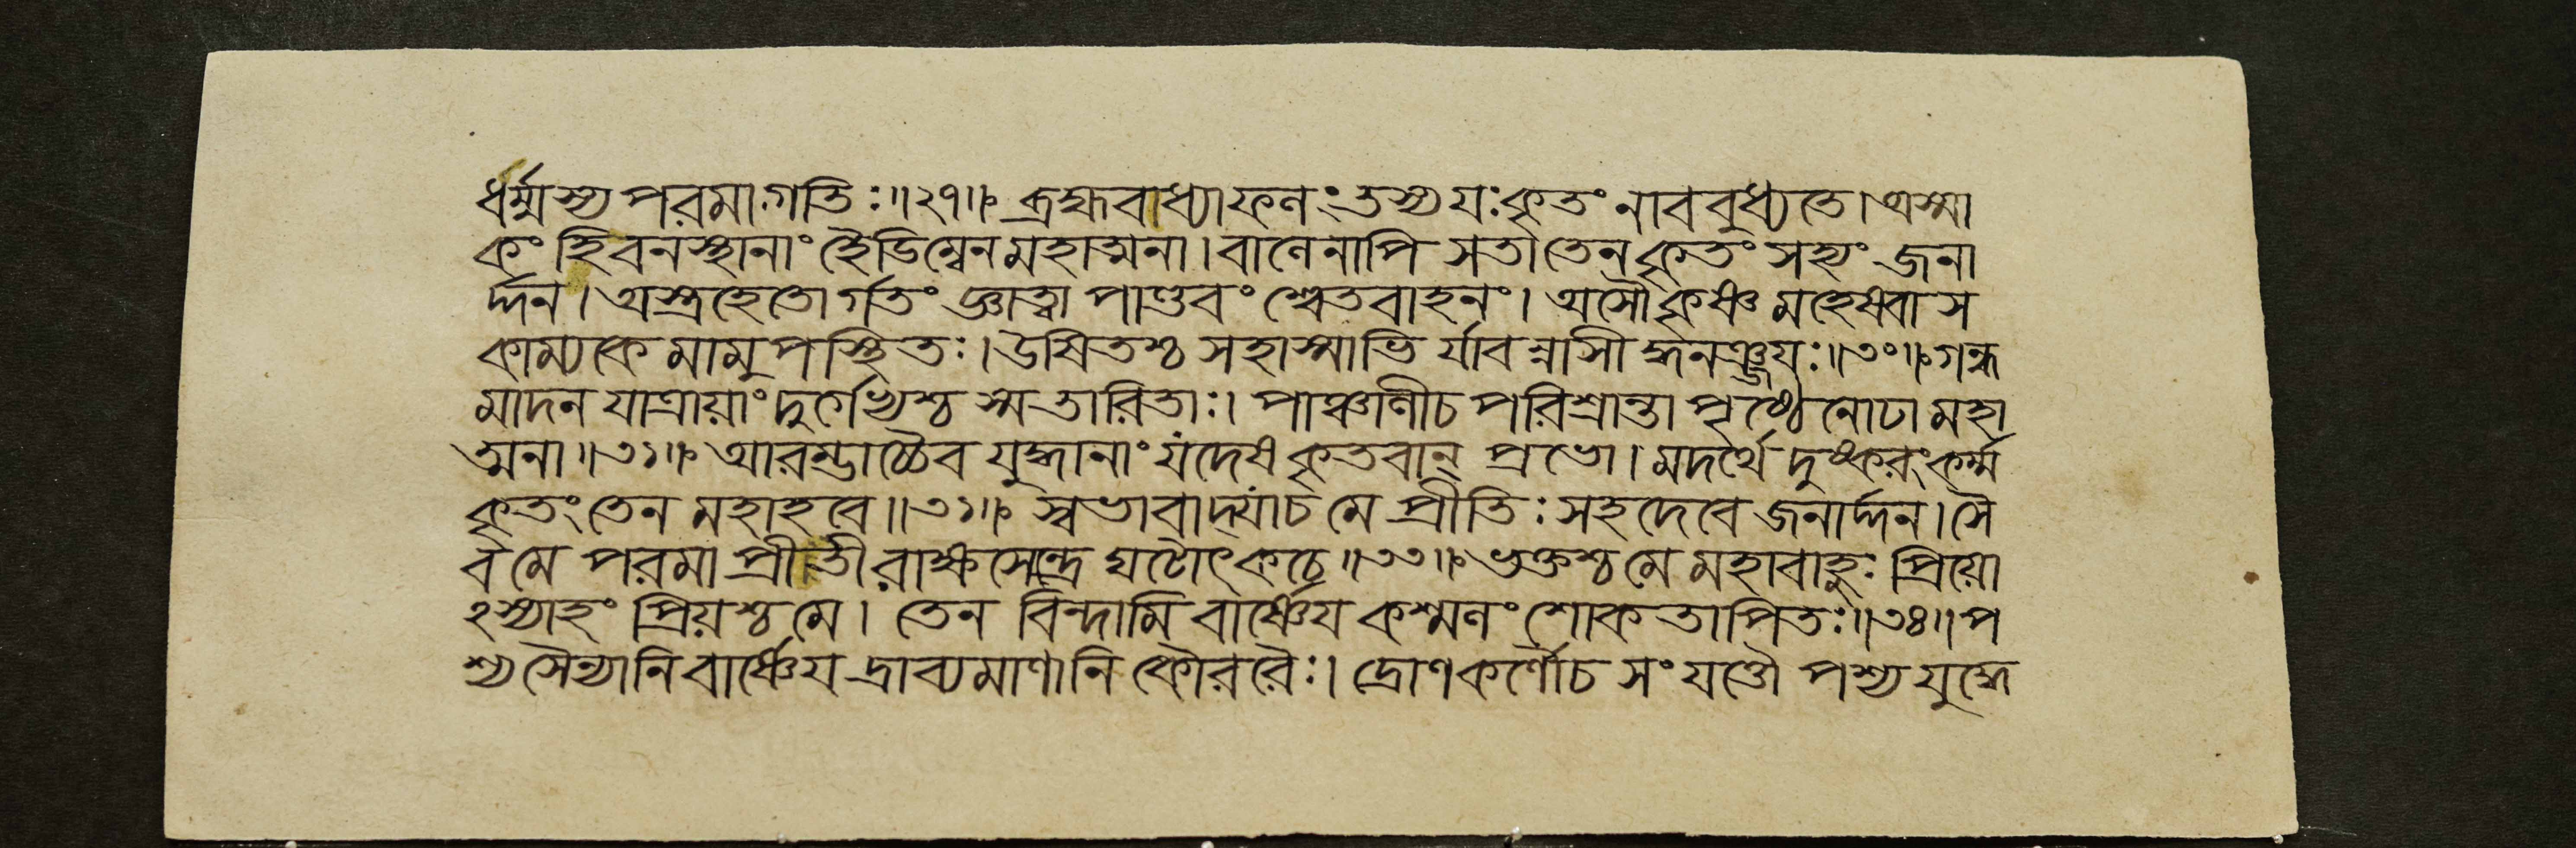 ধর্ম্মস্য পরমা গতিঃ॥২৭॥ ব্রহ্মবাধ্যাফলং তস্য যঃ কৃতং নাববুধ্যতে। অস্মা
কং হি বনস্থানাং হৈডিম্বেন মহাত্মনা। বালেনাপি সতা তেন কৃতং সহ্যং জনা
র্দ্দন। অস্ত্রহেতোর্গতং জ্ঞাত্বা পাণ্ডবং শ্বেতবাহনং। অসৌ কৃষ্ণ মহেষ্বাস
কাম্যকে মামুপস্থিতঃ। উষিতশ্চ সহাস্মাভির্যাবন্নাসীদ্ধনঞ্জয়ঃ॥৩০॥ গন্ধ
মাদন যাত্রায়াং দুর্গেভ্যশ্চ স্ম তারিতাঃ। পাঞ্চালী চ পরিশ্রান্তা পৃষ্ঠেনোঢা মহা
ত্মনা॥৩১॥ আরম্ভাচ্চৈব যুদ্ধানাং যদেষ কৃতবান্ প্রভো। মদর্থে দুষ্করং কর্ম্ম
কৃতং তেন মহাহবে॥৩১॥ স্বভাবাদ্যা চ মে প্রীতিঃ সহদেবে জনার্দ্দন। সৈ
ব মে পরমা প্রীতী রাক্ষসেন্দ্র ঘটোৎকচে॥৩৩॥ ভক্তশ্চ মে মহাবাহুঃ প্রিয়ো
ঽস্যাহং প্রিয়শ্চ মে। তেন বিন্দামি বার্ষ্ণেয় কশ্মলং শোকতাপিতঃ॥৩৪॥ প
শ্য সৈন্যানি বার্ষ্ণেয় দ্রাব্যমাণানি কৌরবৈঃ। দ্রোণকর্ণৌ চ সংযত্তৌ পশ্য যুদ্ধে